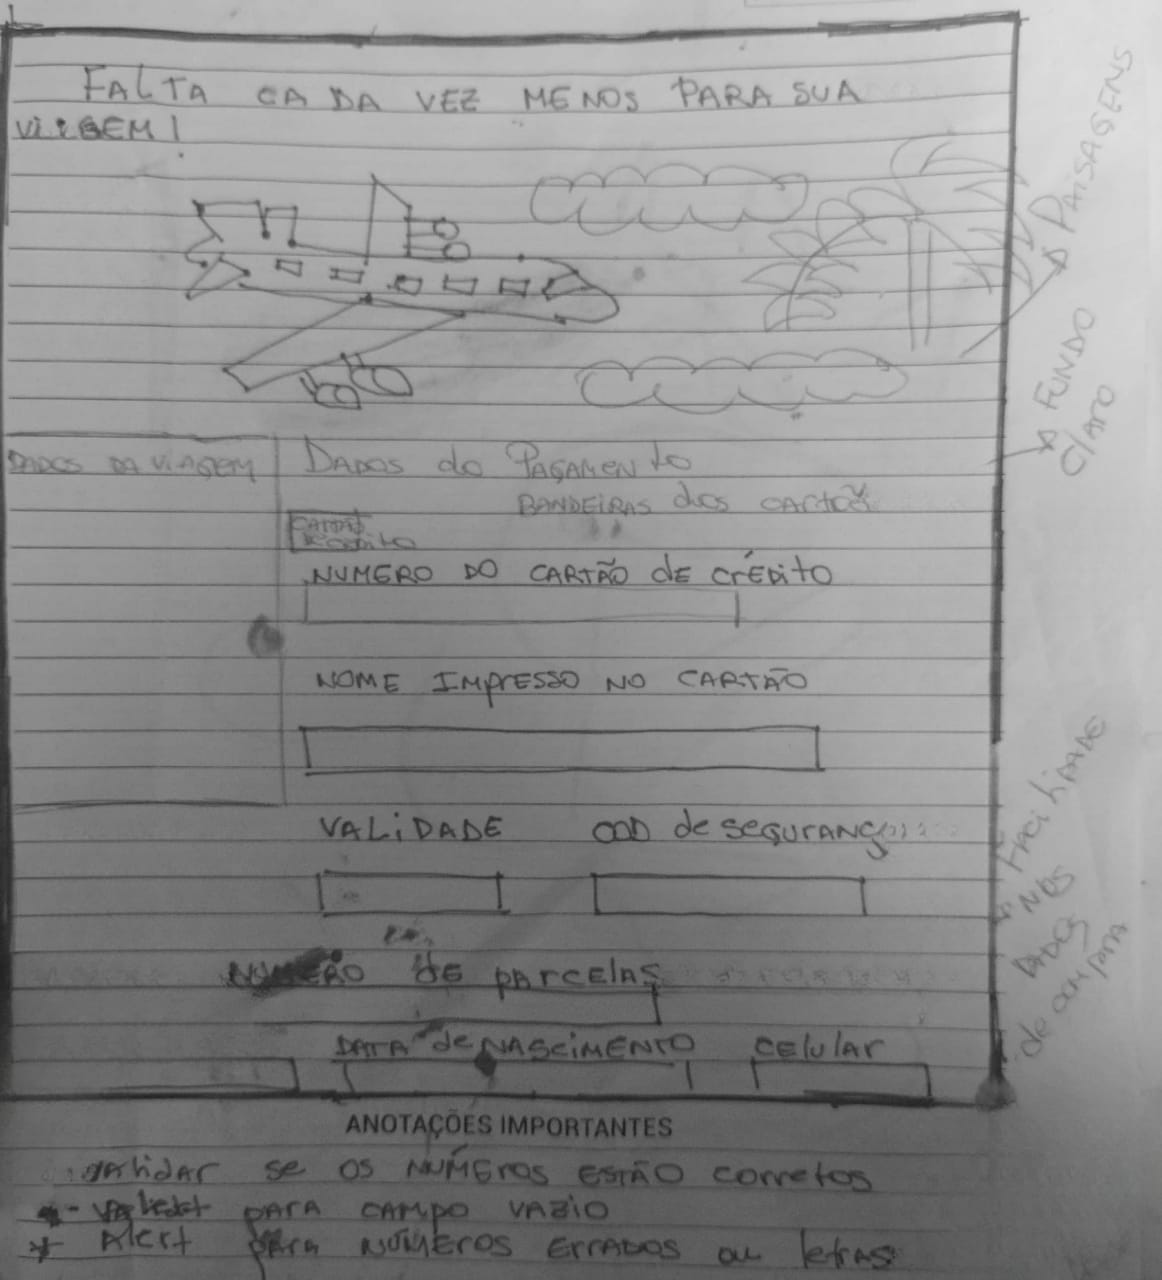 FALTA CADA VEZ MENOS PARA SUA
VIAGEM!
* PAISAGENS
* FUNDO
CLARO
DADOS DA VIAGEM
DADOS do PAGAMENTO
BANDEIRAS dos cartões
CARTÃO
NUMERO DO CARTÃO dE CRÉDITO
NOME IMPRESSO NO CARTÃO
VALIDADE COD de segurança
* FACILIDADE
NOS
DADOS
de compra
NUMERO de parcelas
DATA de NASCIMENTO celular
ANOTAÇÕES IMPORTANTES
validar se os NUMÉROS ESTÃO corretos
PARA CAMPO VAZIO
* Alert para NÚMEROS ERRADOS ou letras